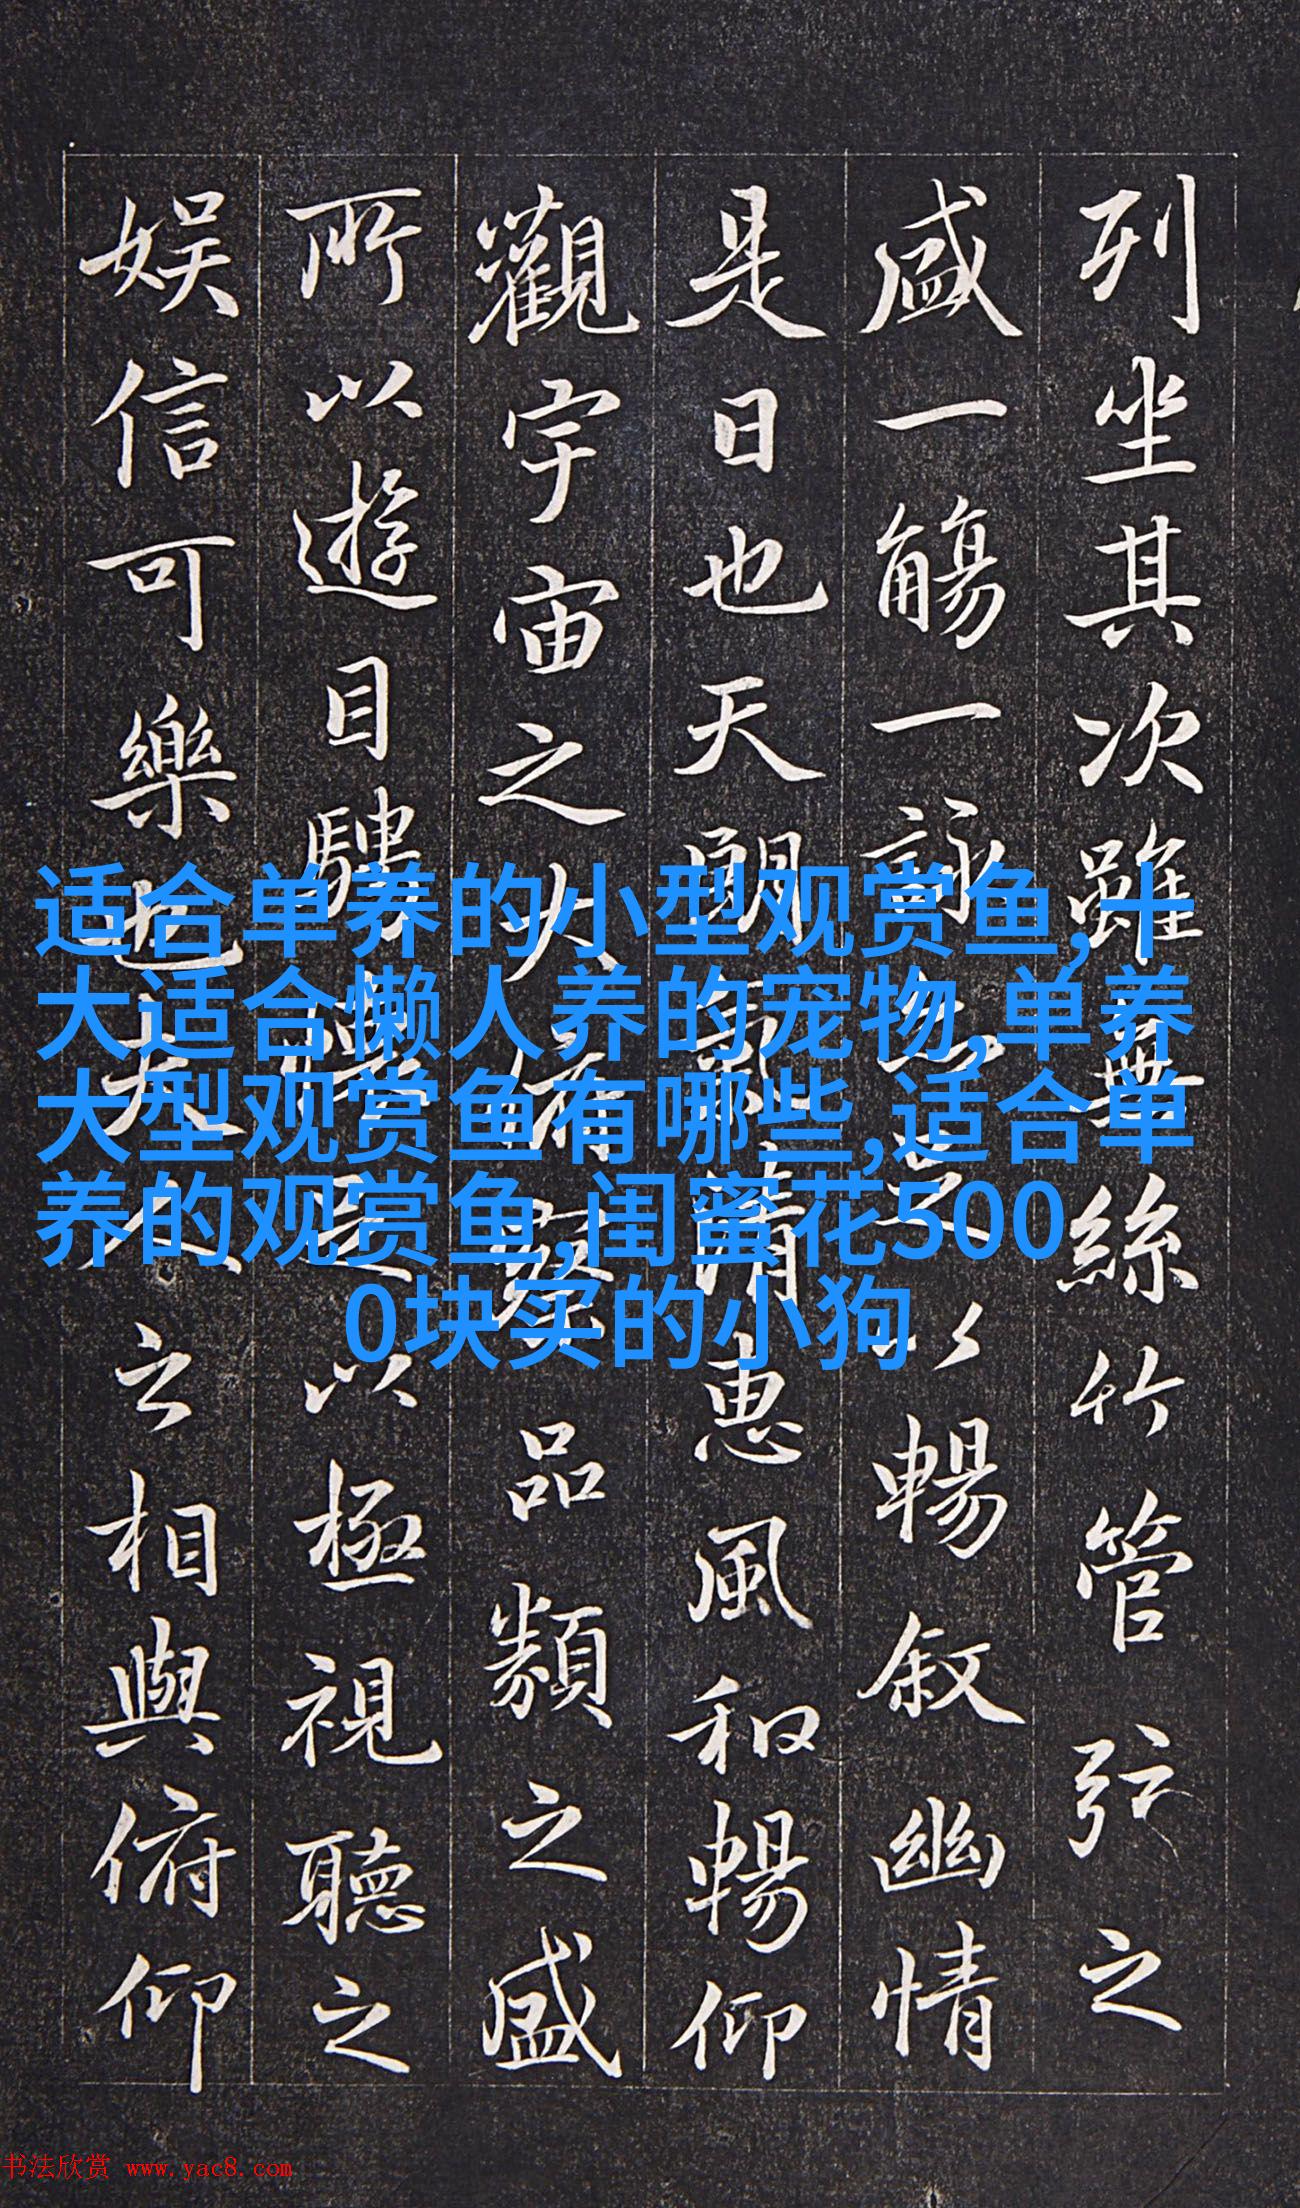 列坐其次雖無絲竹管弦之
盛一觴一詠以暢敘幽情
是日也天朗氣清惠風和暢仰
觀宇宙之大俯察品類之盛
所以遊目騁懷足以極視聽之
娛信可樂也夫人之相與俯仰
适合单养的小型观赏鱼,十
大适合懒人养的宠物,单养
大型观赏鱼有哪些,适合单
养的观赏鱼,闺蜜花500
0块买的小狗
书法欣赏 www.yac8.com